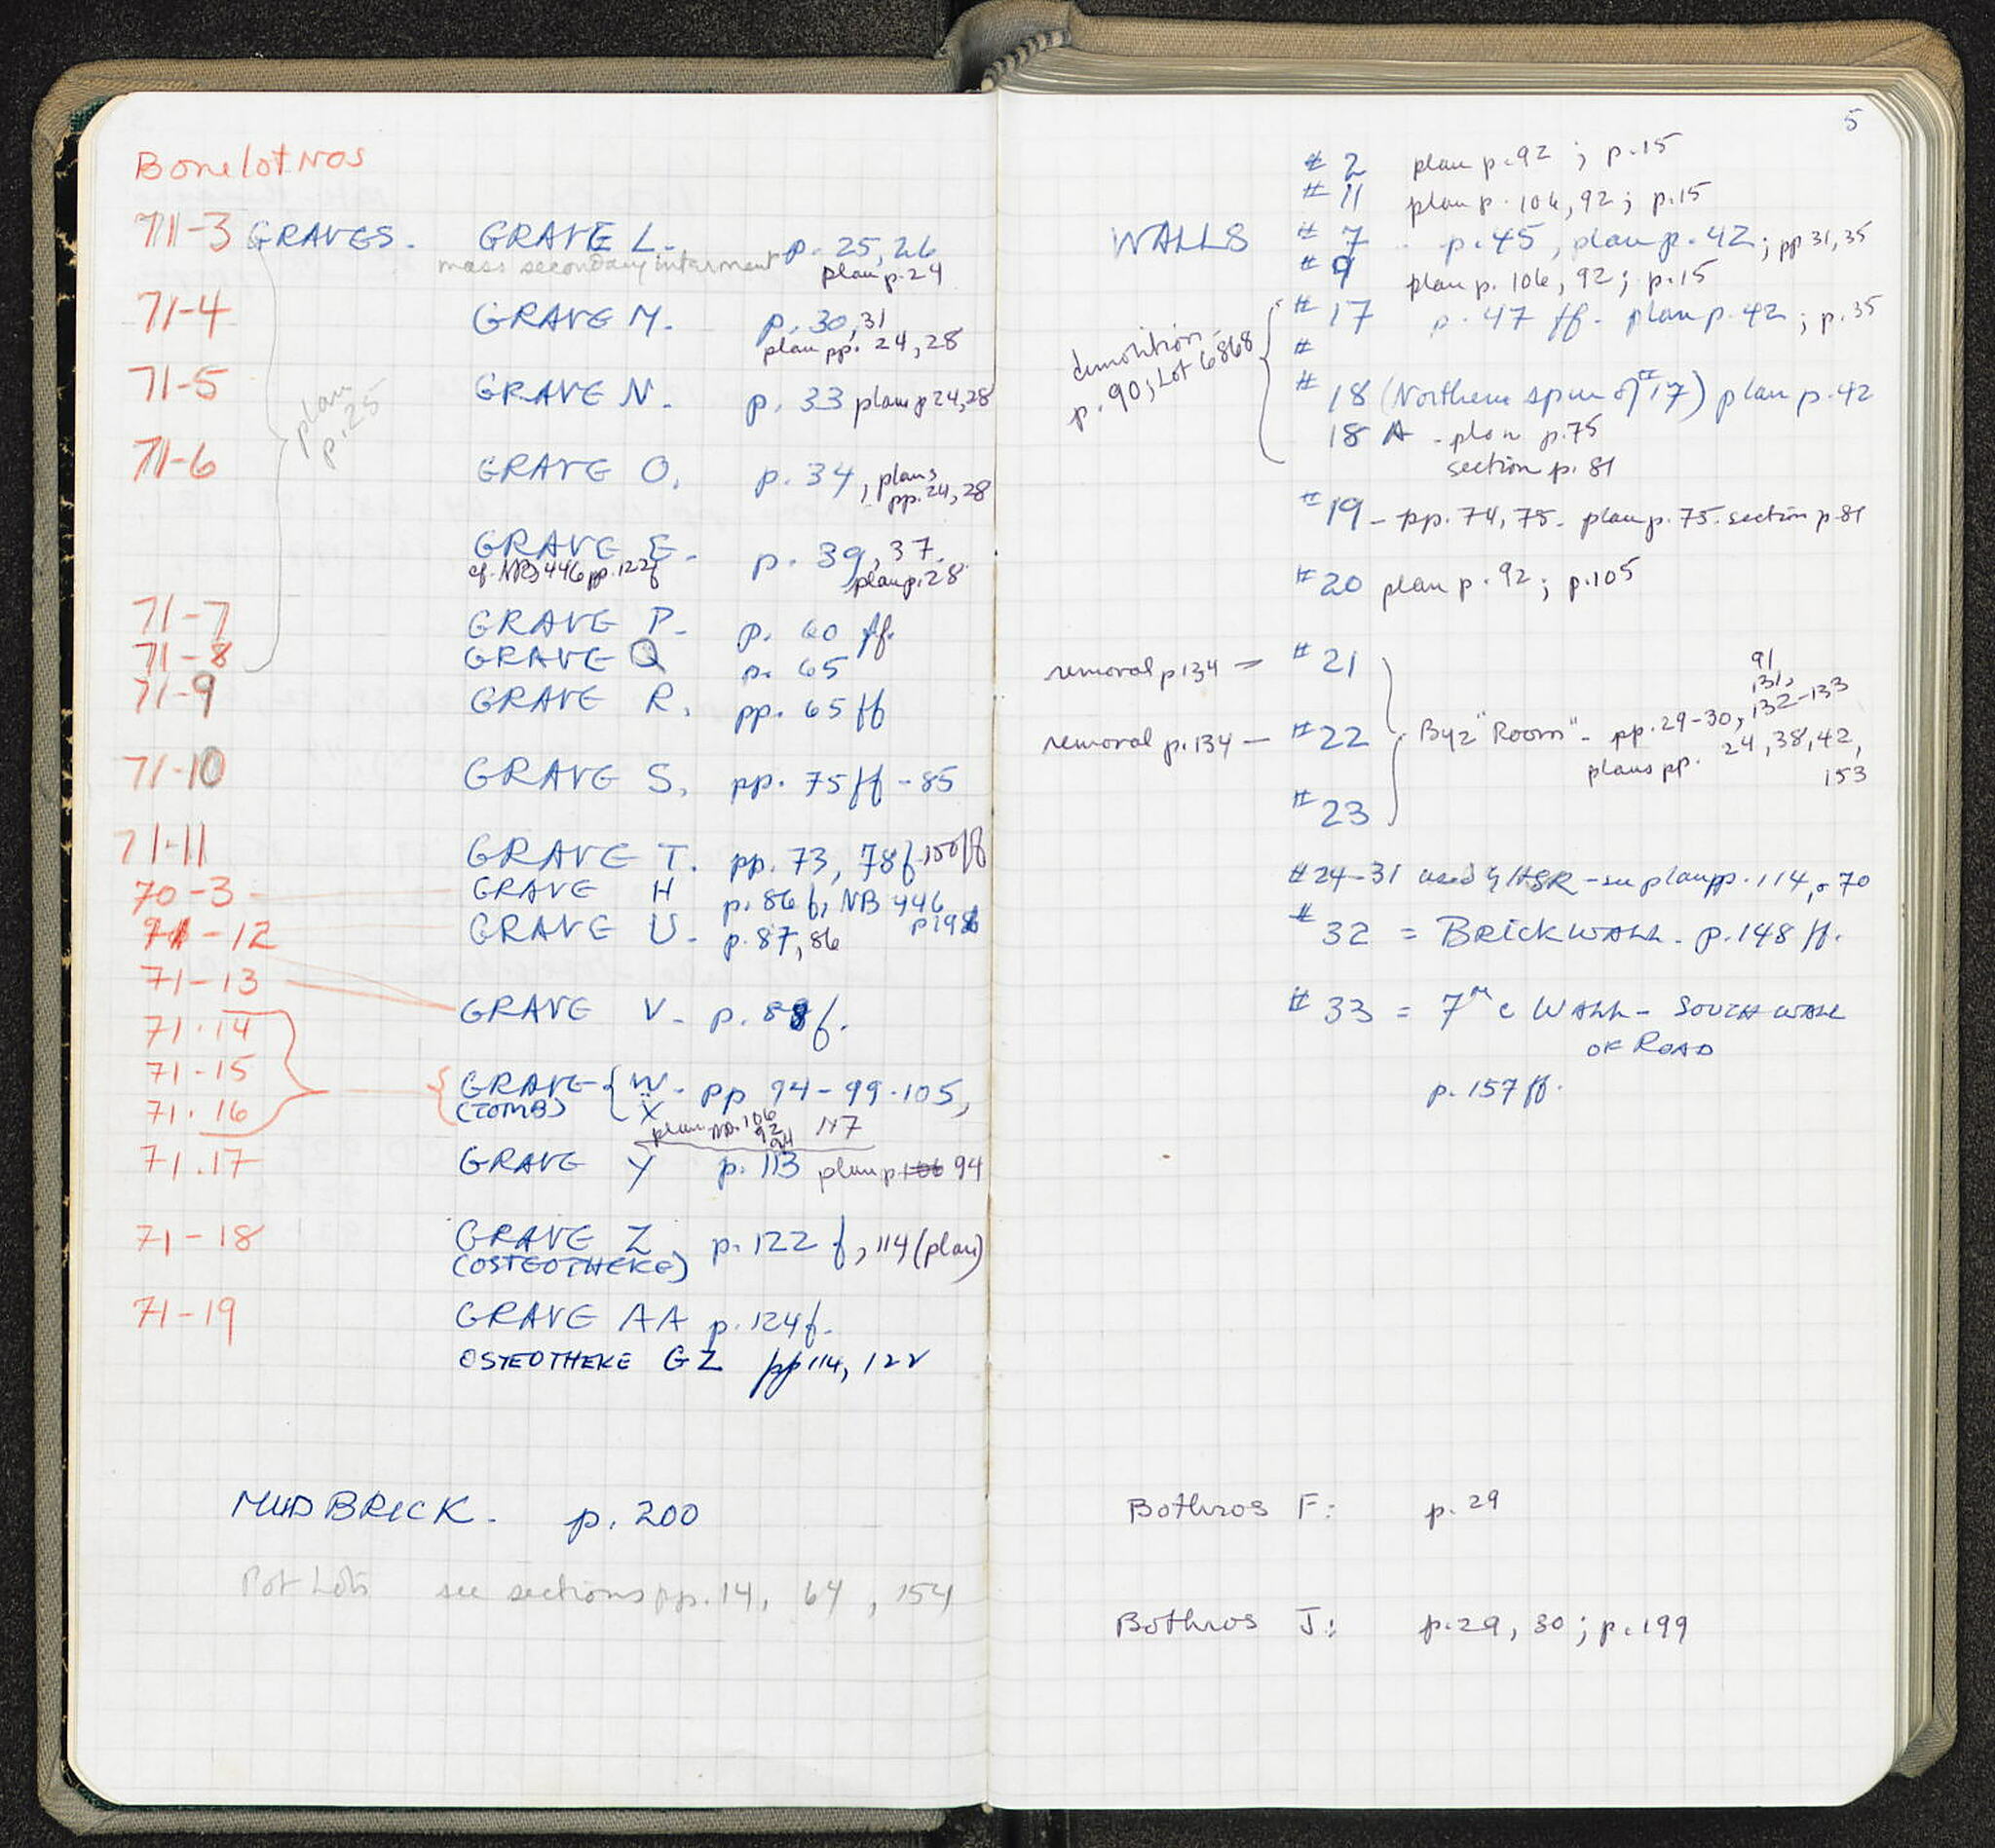 Bone lot Nos
71-3 GRAVES. GRAVE L. p. 25, 26
mass secondary interment plan p. 24
71-4 GRAVE M. p. 30, 31
plan pp. 24, 28
71-5 GRAVE N. p. 33 plan p 24, 28
plan
p. 25
71-6 GRAVE O. p. 34, plans
pp. 24, 28
GRAVE E. p. 39, 37.
cf. NB 446 pp. 122f plan p. 28
71-7 GRAVE P. p. 60 ff.
71-8 GRAVE Q p. 65
71-9 GRAVE R. pp. 65 ff
71-10 GRAVE S. pp. 75 ff - 85
71-11 GRAVE T. pp. 73, 78f. 100ff
70-3 GRAVE H p. 86 f, NB 446
p 198
71-12 GRAVE U. p. 87, 86
71-13
GRAVE V. p. 88 f.
71.14
71-15 GRAVE { W. pp 94-99-105,
71.16 (TOMB) X
plan pp. 106 117
92
94
71.17 GRAVE Y p. 113 plan p 106 94
71-18 GRAVE Z p. 122 f, 114 (plan)
(OSTEOTHEKE)
71-19 GRAVE AA p. 124f.
OSTEOTHEKE GZ pp 114, 122
MUDBRICK. p. 200
Pot Lots see sections pp. 14, 64, 154
5
# 2 plan p. 92 ; p. 15
# 11 plan p. 106, 92 ; p. 15
WALLS # 7 p. 45, plan p. 42 ; pp 31, 35
# 9 plan p. 106, 92 ; p. 15
# 17 p. 47 ff. plan p. 42 ; p. 35
demolition -
p. 90, Lot 6868
#
# 18 (Northern spur of #17) plan p. 42
18 A - plan p. 75
section p. 81
# 19 - pp. 74, 75. plan p. 75. section p. 81
# 20 plan p. 92 ; p. 105
removal p 134 - # 21
91,
131,
removal p. 134 - # 22 Byz "Room" - pp. 29-30, 132-133
plans pp. 24, 38, 42,
153
# 23
# 24-31 used by HSR - see plan pp. 114, 70
# 32 = BRICK WALL - p. 148 ff.
# 33 = 7th c WALL - SOUTH WALL
OF ROAD
p. 157 ff.
Bothros F: p. 29
Bothros J: p. 29, 30 ; p. 199